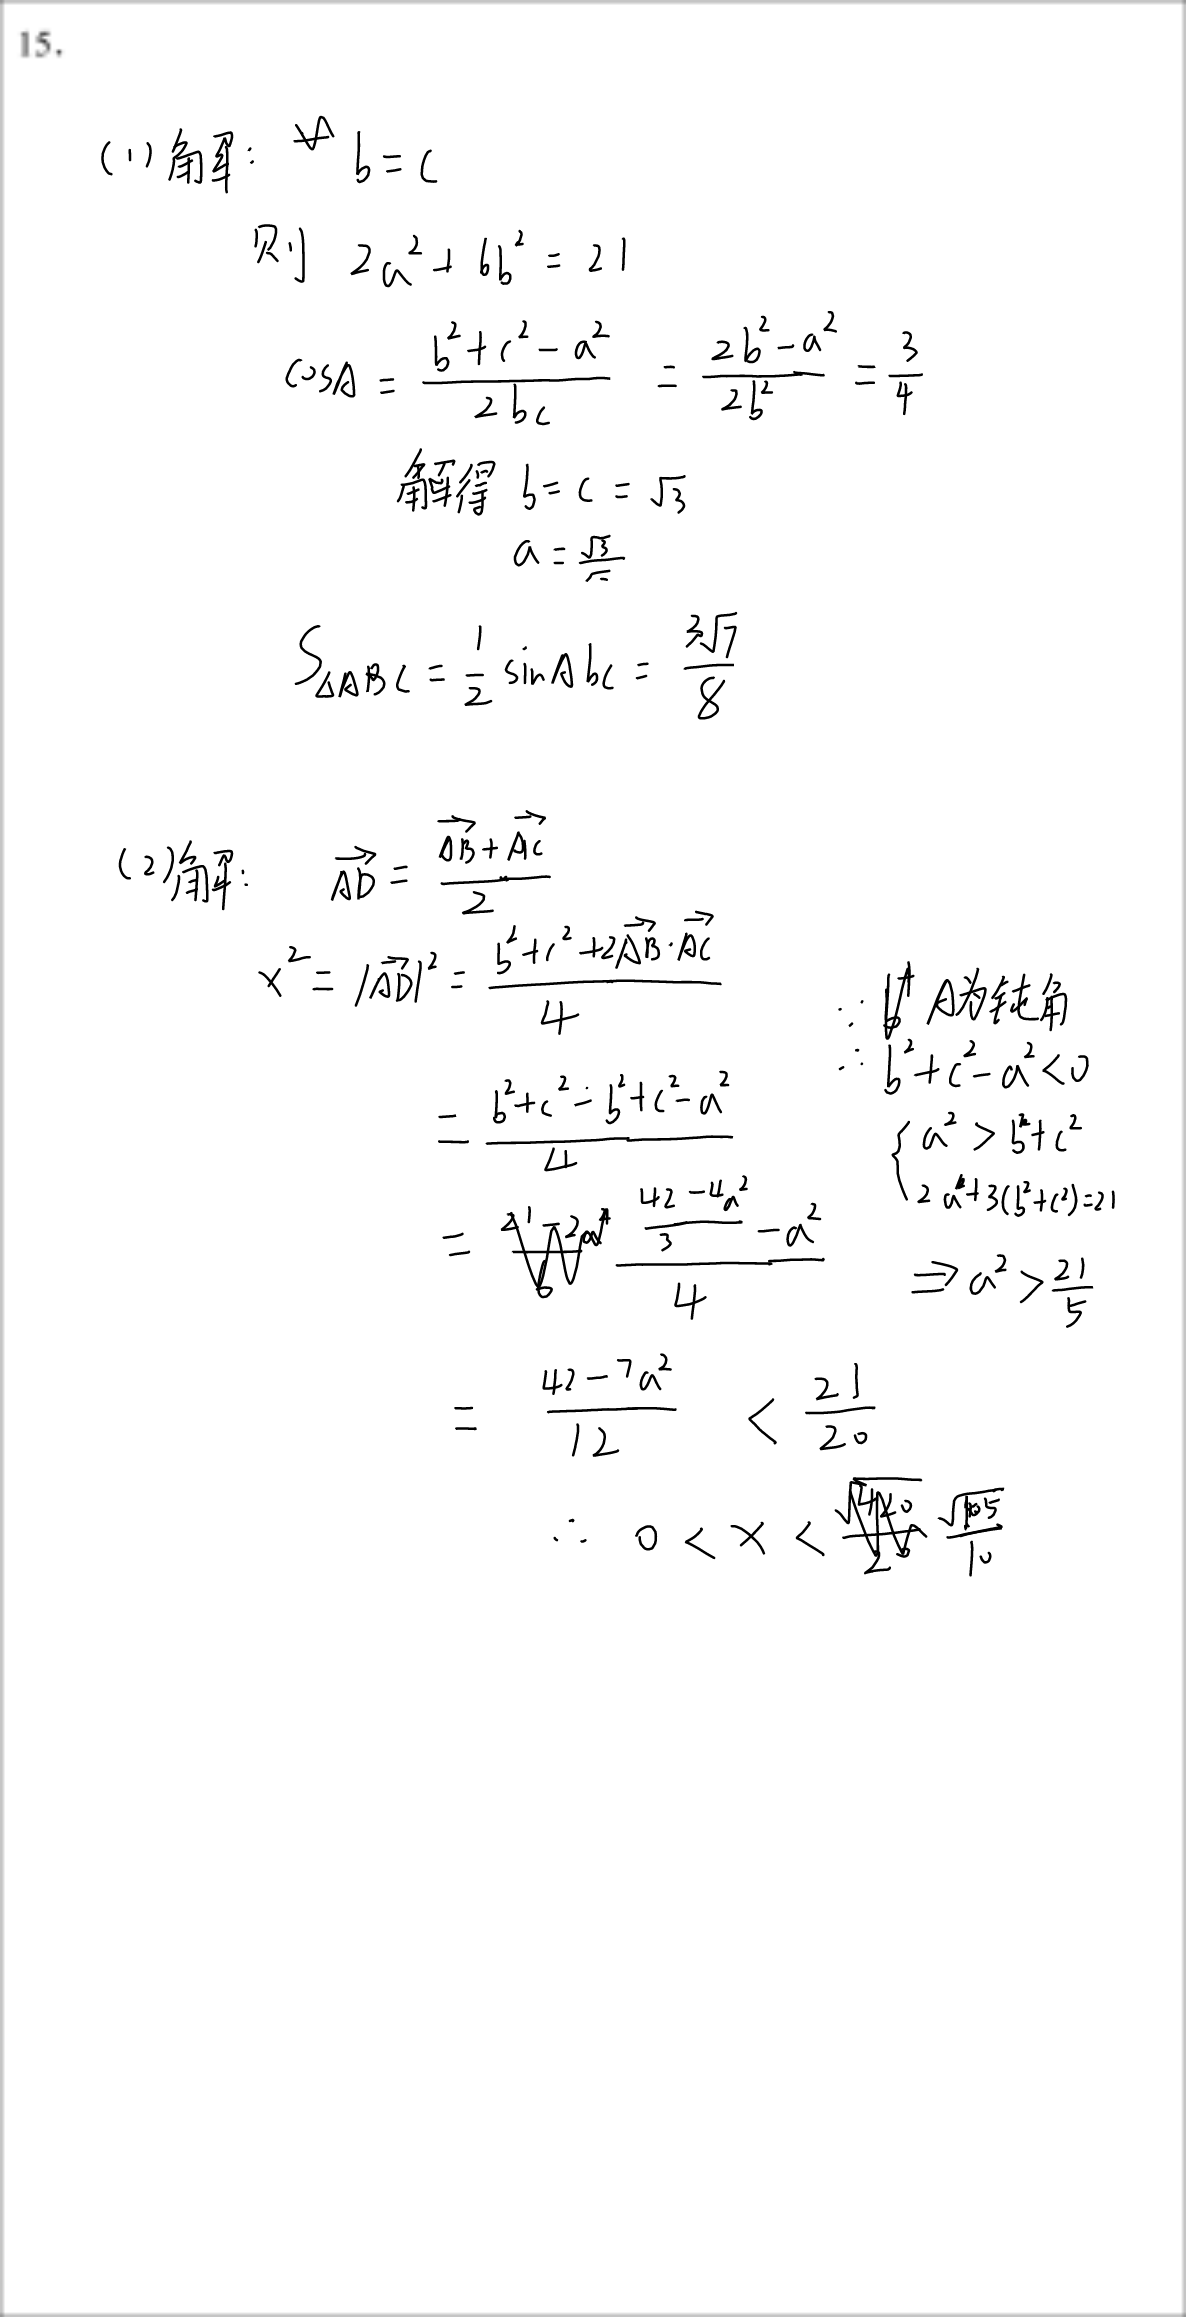 15.
(1)解: b=c
则 2a²+6b²=21
cosA = (b²+c²-a²)/(2bc) = (2b²-a²)/(2b²) = 3/4
解得 b=c=√3
a=
S△ABC = 1/2 sinAbc = 3√7/8
(2)解: AD→ = (AB→+AC→)/2
x² = |AD→|² = (b²+c²+2AB→·AC→)/4
= (b²+c²+b²+c²-a²)/4
= ((42-4a²)/3 - a²)/4
= (42-7a²)/12 < 21/20
∴ 0<x< √105/10
∵ A为钝角
∴ b²+c²-a²<0
{ a²>b²+c²
2a²+3(b²+c²)=21
⇒ a²>21/5